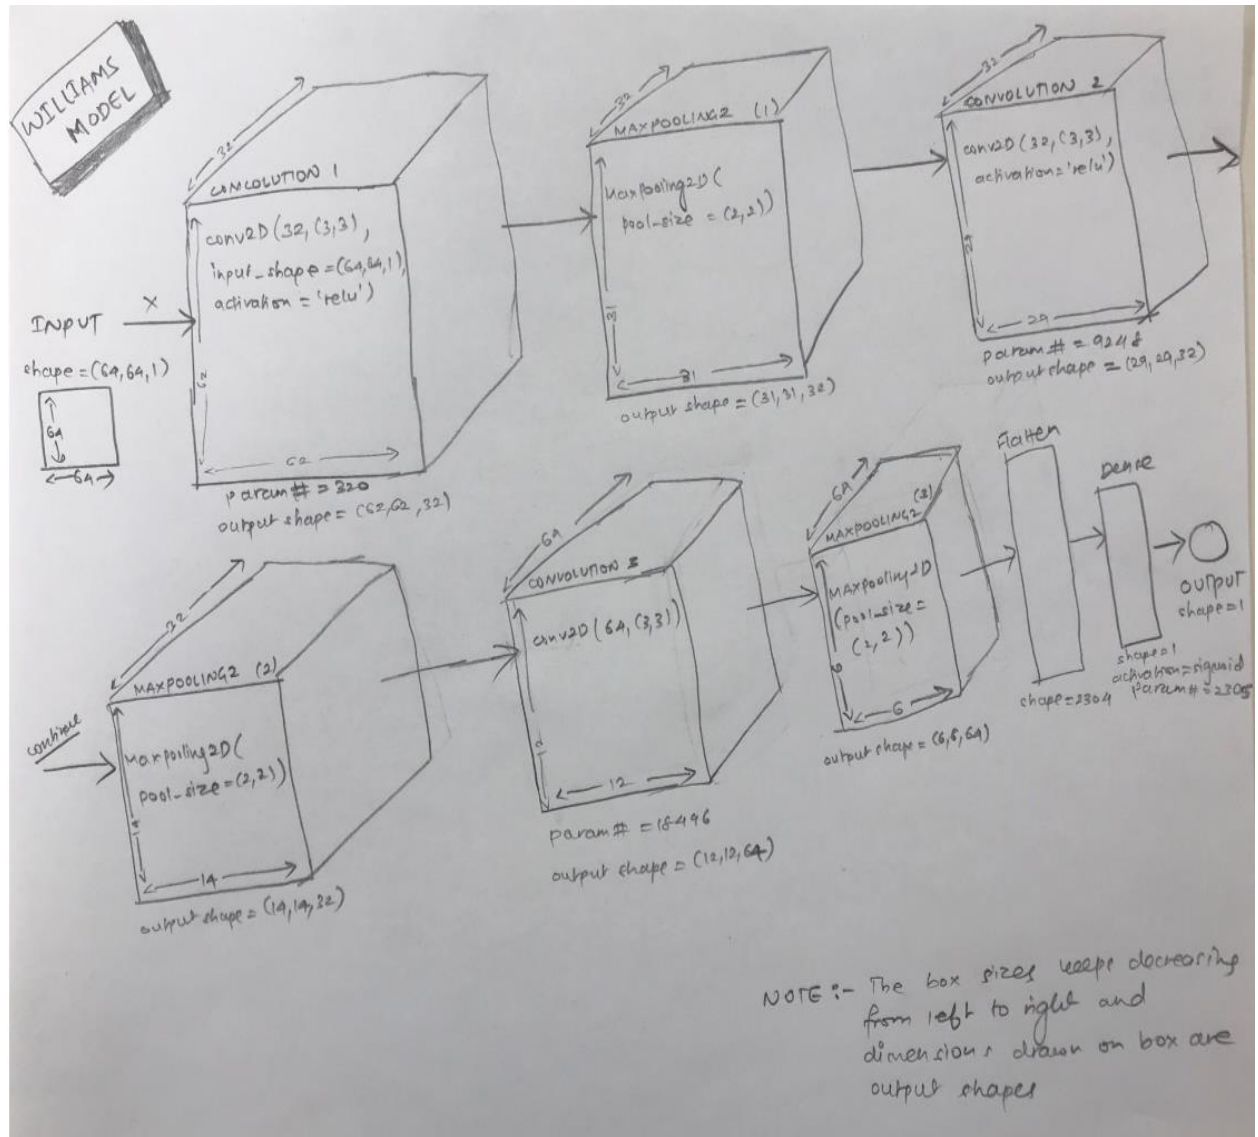 WILLIAMS
MODEL
INPUT
shape=(64,64,1)
64
64
X
32
CONCOLUTION 1
conv2D(32,(3,3),
input_shape=(64,64,1),
activation='relu')
62
62
param# = 320
output shape=(62,62,32)
32
MAXPOOLING2 (1)
MaxPooling2D(
pool_size=(2,2))
31
31
output shape=(31,31,32)
32
CONVOLUTION 2
conv2D(32,(3,3),
activation='relu')
29
29
param# = 9248
output shape = (29,29,32)
continue
32
MAXPOOLING2 (2)
Maxpooling2D(
pool_size=(2,2))
14
14
output shape=(14,14,32)
64
CONVOLUTION 3
conv2D(64,(3,3))
12
12
param# = 18496
output shape = (12,12,64)
64
MAXPOOLING2 (3)
MAXPOOLING2D
(pool_size=
(2,2))
6
6
output shape=(6,6,64)
Flatten
shape=2304
Dense
shape=1
activation=sigmoid
param# = 2305
OUTPUT
shape=1
NOTE :- The box sizes keeps decreasing
from left to right and
dimensions drawn on box are
output shapes